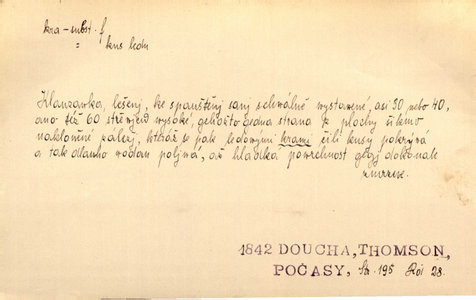 kra - subst. f
= kus ledu
Klouzawka, lešenj, ke spauštěnj sanj schwálně wystawené, asi 30 nebo 40,
ano též 60 střewjců wysoké, gehožto gedna strana z plochy šikmo
nakloněné záležj, kteráž se pak ledowými krami čili kusy pokrýwá
a tak dlauho wodau poljwá, až hladká powrchnost gegj dokonale
zmrzne.
1842 DOUCHA, THOMSON,
POČASY, Str. 195 Roč 28.